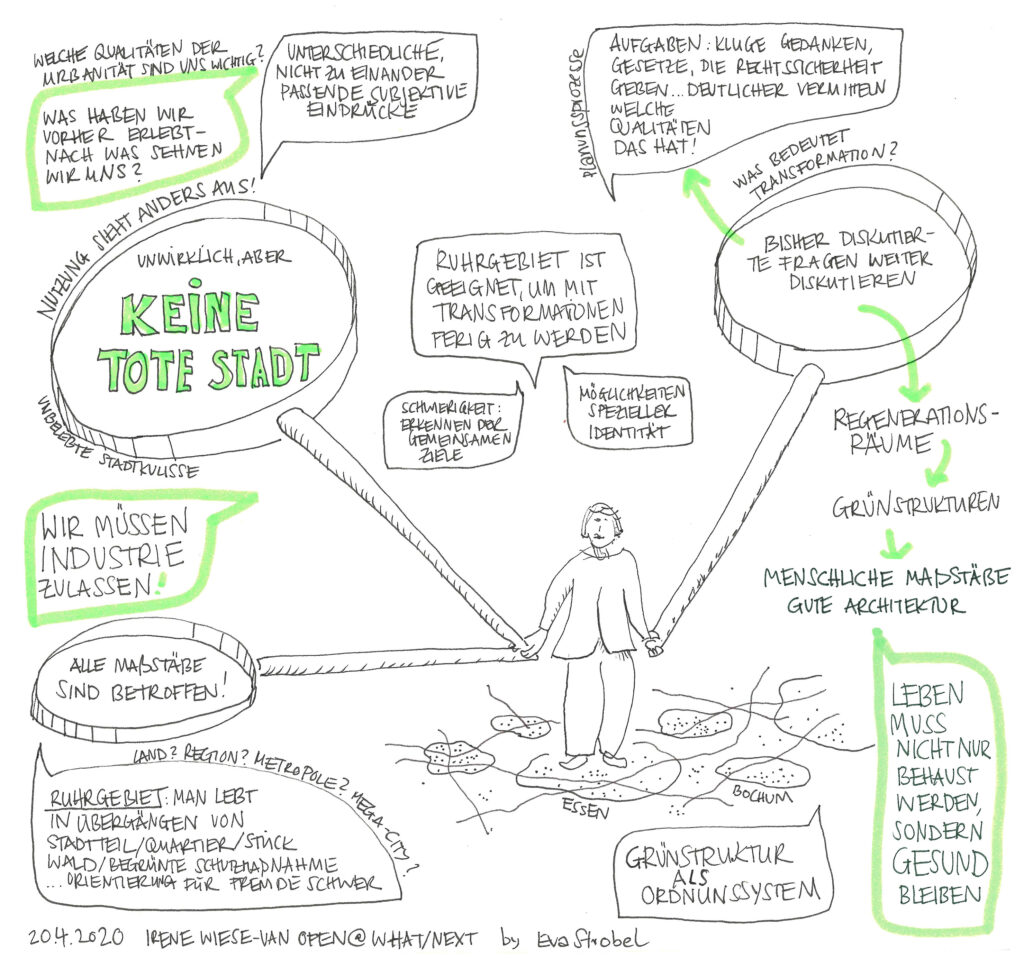 WELCHE QUALITÄTEN DER
URBANITÄT SIND UNS WICHTIG?
WAS HABEN WIR
VORHER ERLEBT-
NACH WAS SEHNEN
WIR UNS?
UNTERSCHIEDLICHE,
NICHT ZU EINANDER
PASSENDE SUBJEKTIVE
EINDRÜCKE
planungsprozesse
AUFGABEN: KLUGE GEDANKEN,
GESETZE, DIE RECHTSSICHERHEIT
GEBEN... DEUTLICHER VERMITTELN
WELCHE
QUALITÄTEN
DAS HAT!
WAS BEDEUTET
TRANSFORMATION?
BISHER DISKUTIER-
TE FRAGEN WEITER
DISKUTIEREN
NUTZUNG SIEHT ANDERS AUS!
UNWIRKLICH, ABER
KEINE
TOTE STADT
UNBELEBTE STADTKULISSE
RUHRGEBIET IST
GEEIGNET, UM MIT
TRANSFORMATIONEN
FERIG ZU WERDEN
SCHWERIGKEIT:
ERKENNEN DER
GEMEINSAMEN
ZIELE
MÖGLICHKEITEN
SPEZIELLER
IDENTITÄT
REGENERATIONS-
RÄUME
GRÜNSTRUKTUREN
MENSCHLICHE MAßSTÄBE
GUTE ARCHITEKTUR
WIR MÜSSEN
INDUSTRIE
ZULASSEN!
ALLE MAßSTÄBE
SIND BETROFFEN!
LAND? REGION? METROPOLE? MEGA-CITY?
RUHRGEBIET: MAN LEBT
IN ÜBERGÄNGEN VON
STADTTEIL/QUARTIER/STÜCK
WALD/BEGRÜNTE SCHUTZMAßNAHME
...ORIENTIERUNG FÜR FREMDE SCHWER
ESSEN
BOCHUM
GRÜNSTRUKTUR
ALS
ORDNUNGSSYSTEM
LEBEN
MUSS
NICHT NUR
BEHAUST
WERDEN,
SONDERN
GESUND
BLEIBEN
20.4.2020 IRENE WIESE-VAN OPEN@WHAT/NEXT by Eva Strobel